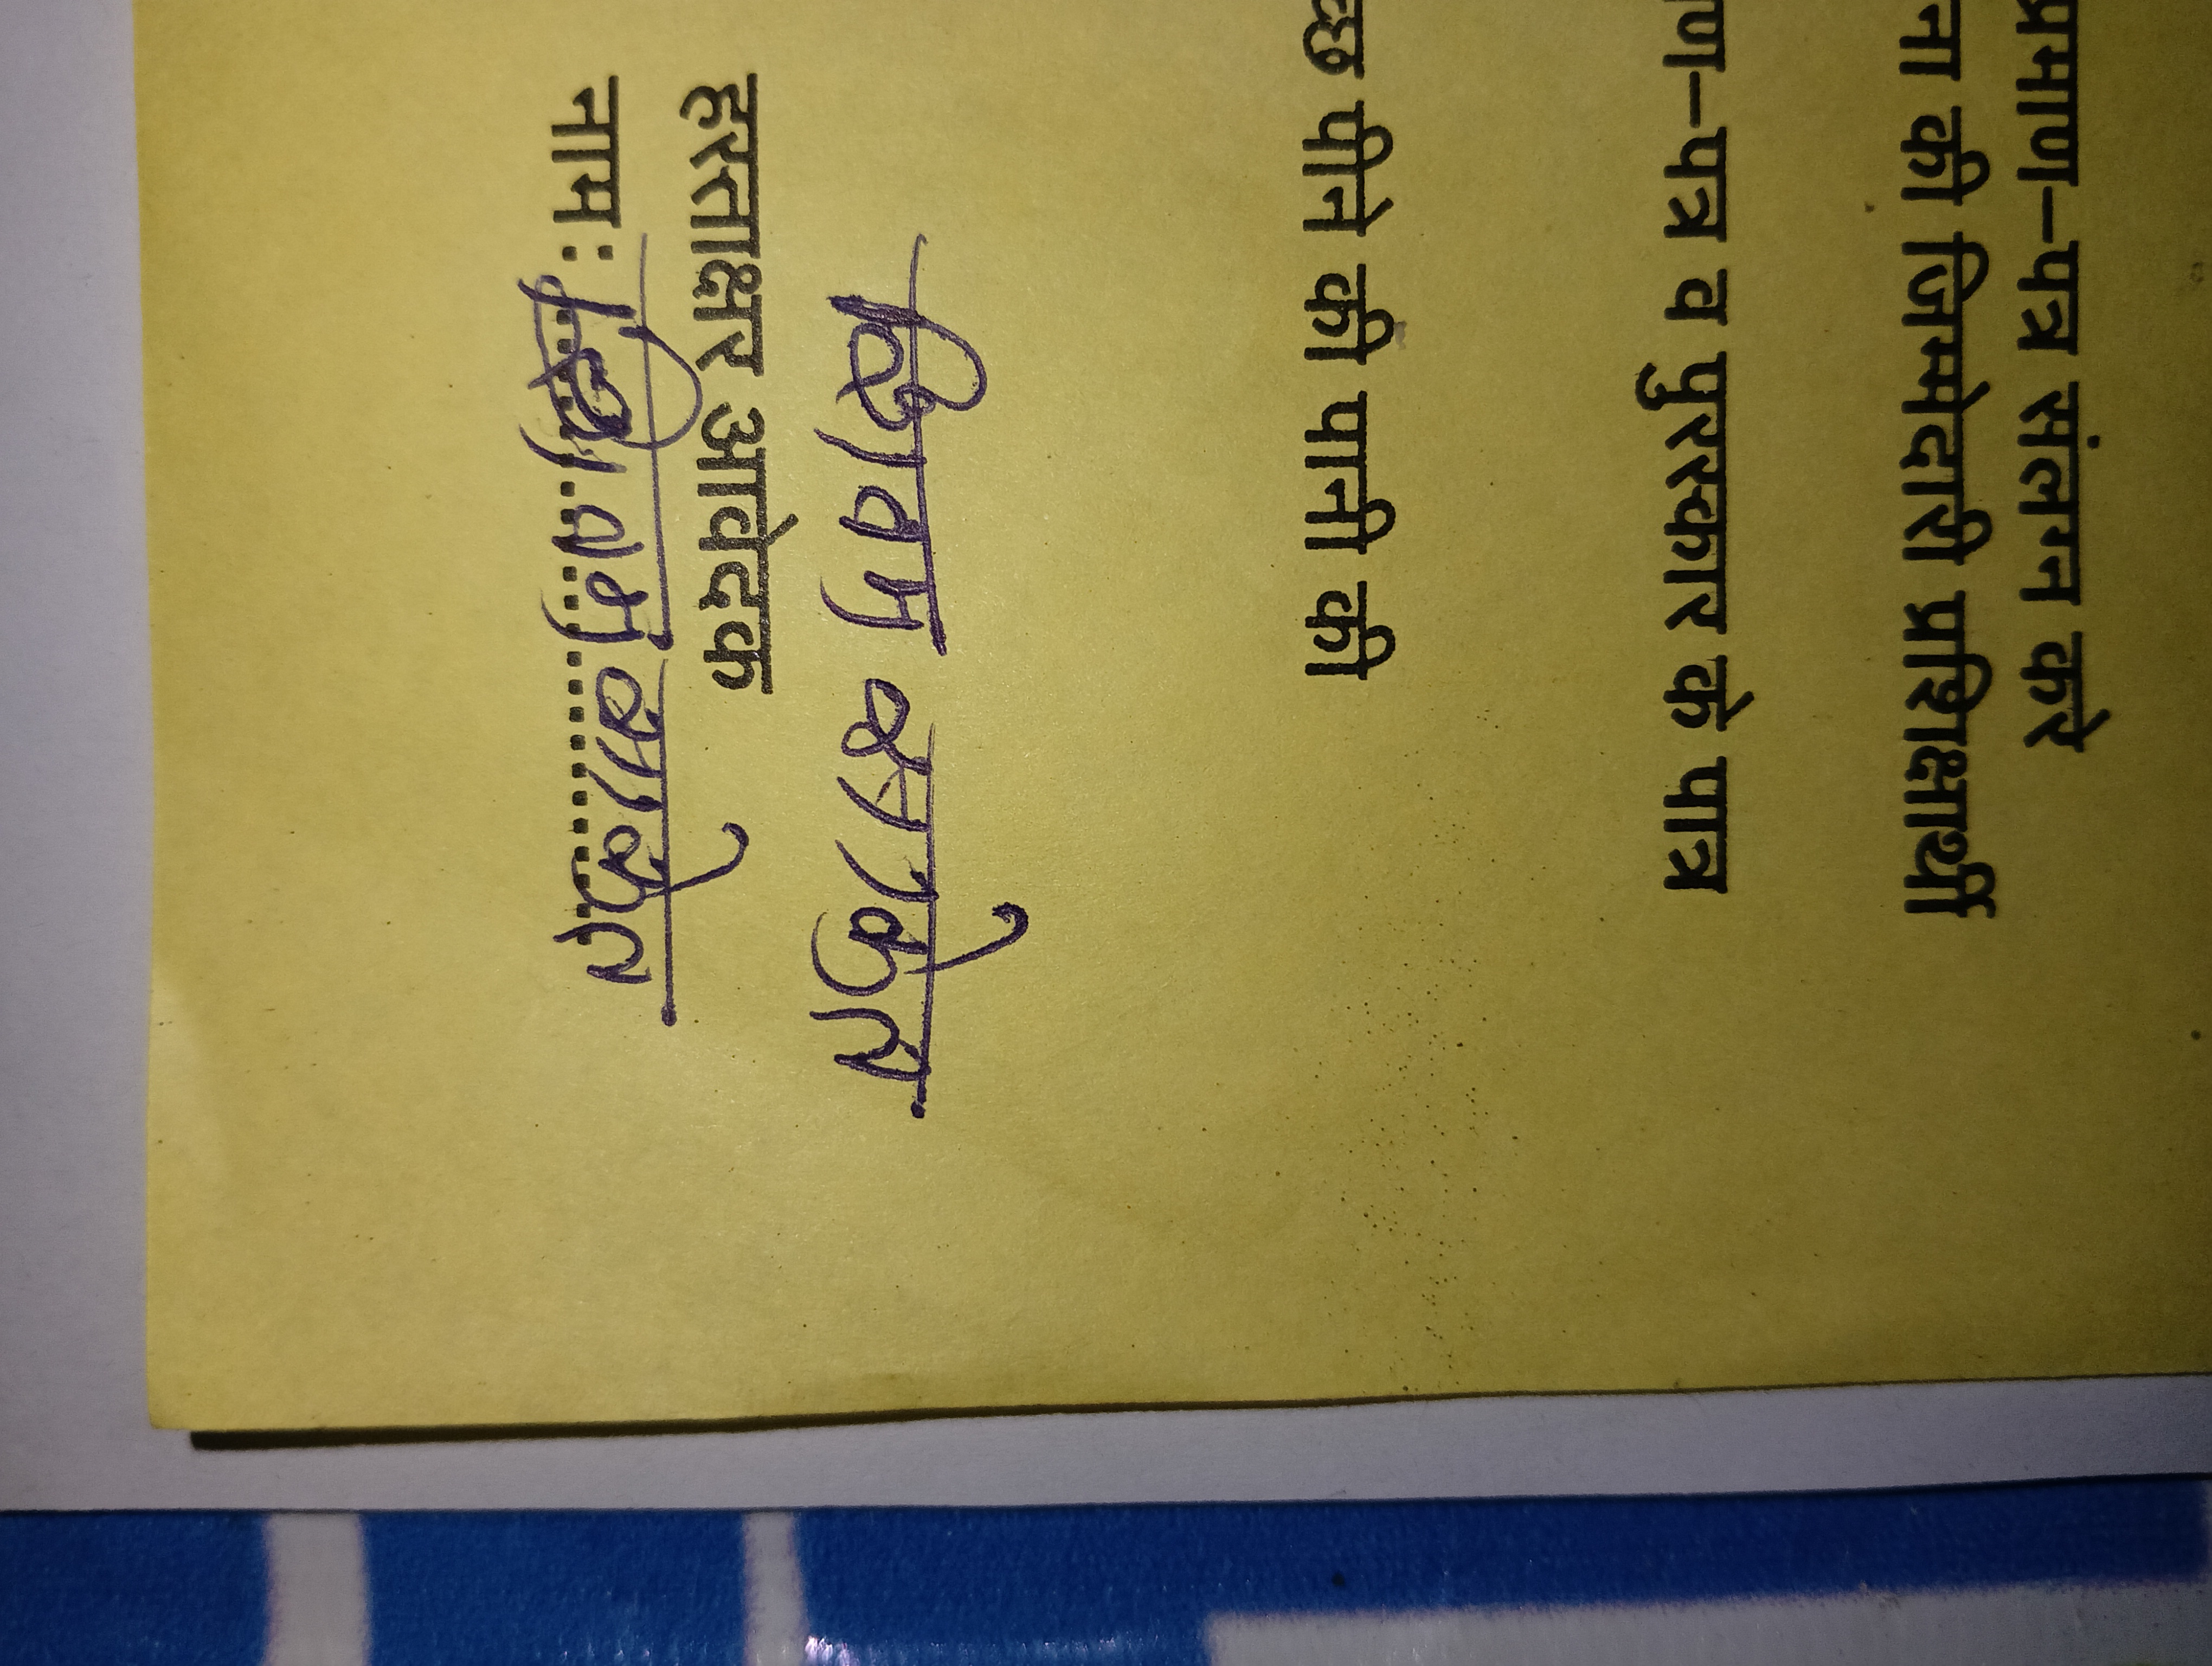 प्रमाण-पत्र संलग्न करे
ना की जिम्मेदारी प्रशिक्षार्थी
ण-पत्र व पुरस्कार के पात्र
च्छ पीने की पानी की
शिवम साकेत
हस्ताक्षर आवेदक
नाम: शिवम साकेत